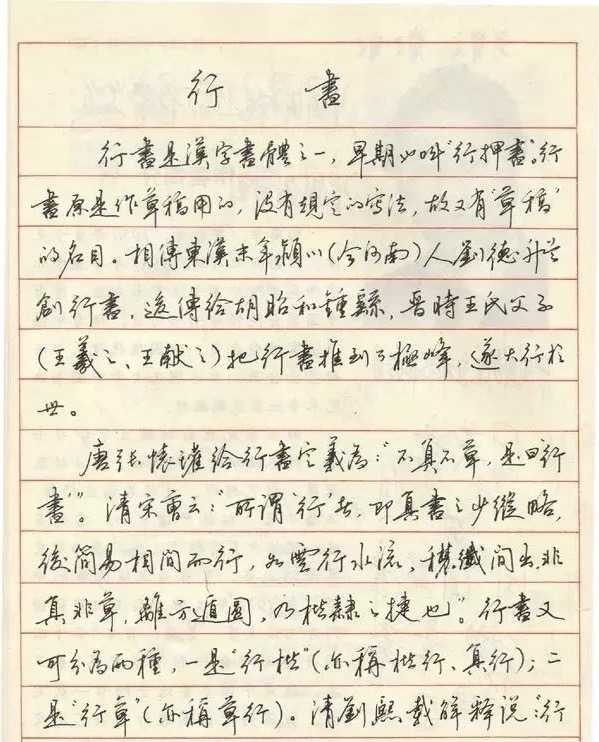 行書
行書是漢字書體之一，早期也叫“行押書”。行
書原是作草稿用的，没有規定的寫法，故又有“草稿”
的名目。相傳東漢末年潁川（今河南）人劉德升首
創行書，後傳給胡昭和鍾繇，晋時王氏父子
（王羲之、王献之）把行書推到了極峰，遂大行於
世。
唐張懷瓘給行書定義為：“不真不草，是曰行
書”。清宋曹云：“所謂‘行’者，即真書之少縱略，
後簡易相間而行，如雲行水流，穠纖間出，非
真非草，離方遁圓，乃楷隸之捷也”。行書又
可分為兩種，一是“行楷”（亦稱楷行、真行）；二
是“行草”（亦稱草行）。清劉熙載解釋說：“行